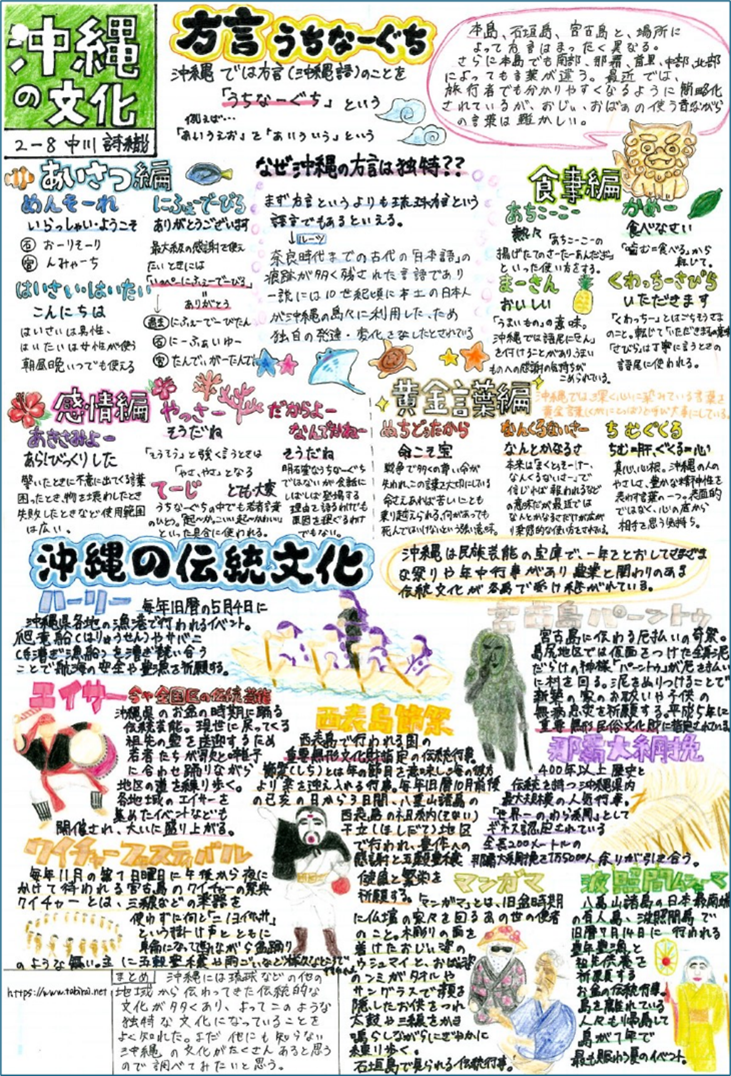 沖縄
の文化
2-8 中川 詩織
方言 うちなーぐち
沖縄では方言(沖縄語)のことを
「うちなーぐち」という
例えば…
「あいうえお」で「あいういう」という
本島、石垣島、宮古島と、場所に
よって方言はまったく異なる。
さらに本島でも南部、那覇、首里、中部、北部
によっても言葉が違う。最近では、
旅行者でも分かりやすくなるように簡略化
されているが、おじぃ、おばぁの使う昔ながら
の言葉は難かしい。
あいさつ編
めんそーれ
いらっしゃい・ようこそ
石 おーりとーり
宮 んみゃーち
はいさい・はいたい
こんにちは
はいさいは男性、
はいたいは女性が使う
朝昼晩いつでも使える
にふぇーでーびる
ありがとうございます
最大級の感謝を伝え
たいときには
「いっぺーにふぇーでーびる」
ありがとう
過去 にふぇーでーびたん
石 にーふぁいゆー
宮 たんでぃがーたんでぃ
なぜ沖縄の方言は独特??
まず方言というよりも琉球方言という
語言でもあるといえる。
ルーツ
奈良時代までの古代の「日本語」の
痕跡が多く残された言語であり
一説には10世紀頃に本土の日本人
が沖縄の島々に利用した、ため
独自の発達・変化を成したとされている
食事編
あちこーこー
熱々「あちこーこーの
揚げたてのさーたーあんだぎー」
といった使い方をする。
まーさん
おいしい
「うまいもの」の意味。
沖縄では語尾に「さん」
を付けることがあり、うまい
ものへの感謝の気持ちが
こめられている。
かめー
食べなさい
「噛む=食べる」から
転じて。
くわっちーさびら
いただきます
「くわっちー」とはごちそうさま
のこと。転じて「いただきます」の意味
「さびら」は丁寧に言うときの
語尾に使われる。
感情編
あきさみよー
あらびっくりした
驚いたときに不意に出てくる言葉
困ったとき、物を壊わしたとき
失敗したときなど使用範囲
は広い。
やっさー
そうだね
「そうそう」と強く言うときは
「やさ、やさ」となる
てーじ とても・大変
うちなーぐちの中でも若者言葉
のひとつ。
といった具合に使われる。
だからよー
なんでかねー
そうだね
明石蛮なうちなーぐち
ではないが会話に
しばしば登場する
理由を語るわけでも
原因を探ぐるわけ
でもない。
黄金言葉編
沖縄では深く心に記されている言葉を
黄金言葉(くがにことば)と呼び大事にしている。
ぬちどぅたから
命こそ宝
戦争で多くの尊い命が
失われ、この言葉を大切にしている
命さえあれば苦しいことも
乗り越えられる、何があっても
死んではいけないという強い意味。
なんくるないさー
なんとかなるさ
本来は「まくとぅそーけー、
なんくるないさー」で
信じれば報われるなど
の意味だが最近では
なんとかなるさだけが広が
り楽観的な使い方をされる。
ちむぐくる
ちむ=肝、ぐくる=心
真心、心根。沖縄の人の
やさしい、豊かな精神性を
表わす言葉の一つ。表面的
ではなく、心の底から
相手を思う気持ち。
沖縄の伝統文化
沖縄は民族芸能の宝庫で一年をとおしてさまざま
な祭りや年中行事があり農業と関わりのある
伝統文化が各島で受け継がれている。
ハーリー
毎年旧暦の5月4日に
沖縄県各地の漁港で行われるイベント。
爬竜船(はりゅうせん)やサバニ
(手漕ぎ漁船)を漕ぎ競い合う
ことで航海の安全や豊漁を祈願する。
エイサー 今や全国区の伝統芸能
沖縄県のお盆の時期に踊る
伝統芸能。現世に戻ってくる
祖先の霊を送迎するため
若者たちが歌と囃子
に合わせ踊りながら
地区の道を練り歩く。
各地域のエイサーを
集めたイベントなども
開催され、大いに盛り上がる。
クイチャーフェスティバル
毎年11月の第1日曜日に午後から夜に
かけて行われる宮古島のクイチャーの祭典
クイチャーとは、三線などの楽器を
使わずに何と「ニノヨイサッサ」
という掛け声とともに
員命になって踊りながら盆踊り
のような舞い。主に五穀豊穣や雨ごいなど
西表島節祭
西表島で行われる国の
重要無形文化財指定の伝統行事。
節祭(しち)とは年の節目を意味し海の彼方
より幸を迎え入れる行事。毎年旧暦10月前後
の己亥の日から3日間、八重山諸島の
西表島の祖納(そない)
干立(ほしだて)地区
で行われ、豊作への
感謝と五穀豊穣
健康と繁栄を
祈願する。
宮古島パーントゥ
宮古島に伝わる厄払いの奇祭。
島尻地区では仮面をつけた全身泥
だらけの神様、「パーントゥ」が厄を払い
に村を回る。泥をぬりつけることで
新築の家のお祓いや子供の
無病息災を祈願する。平成5年に
重要無形民俗文化財に指定されている
那覇大綱挽
400年以上歴史と
伝統を持つ沖縄県内
最大規模の人気行事。
「世界一のわら綱」として
ギネス認定されている
全長200メートルの
那覇大綱挽を1万5000人余りが引き合う。
マンガマ
「マンガマとは、旧盆時期
に仏壇の家々を回るあの世の使者
のこと。木彫りの面を
着けたおじぃ姿の
ウシュマイと、おばぁ姿
のンミがタオルや
サングラスで顔を
隠したお供をつれ
太鼓や三線をかき
鳴らしながらにぎやかに
練り歩く。
石垣島で見られる伝統行事。
波照間ムシャーマ
八重山諸島の日本最南端
の有人島、波照間島で
旧暦7月14日に行われる
豊年豊漁と
祖先供養を
祈願する
お盆の伝統行事。
島を離れている
人々も帰島して
島が1年で
最も賑わう夏のイベント。
https://www.tabirai.net
まとめ 沖縄には琉球などの他の
地域から伝わってきた伝統的な
文化が多くあり、よってこのような
独特な文化になっていることを
よく知れた。まだ他にも知らない
沖縄の文化がたくさんあると思う
ので調べてみたいと思う。